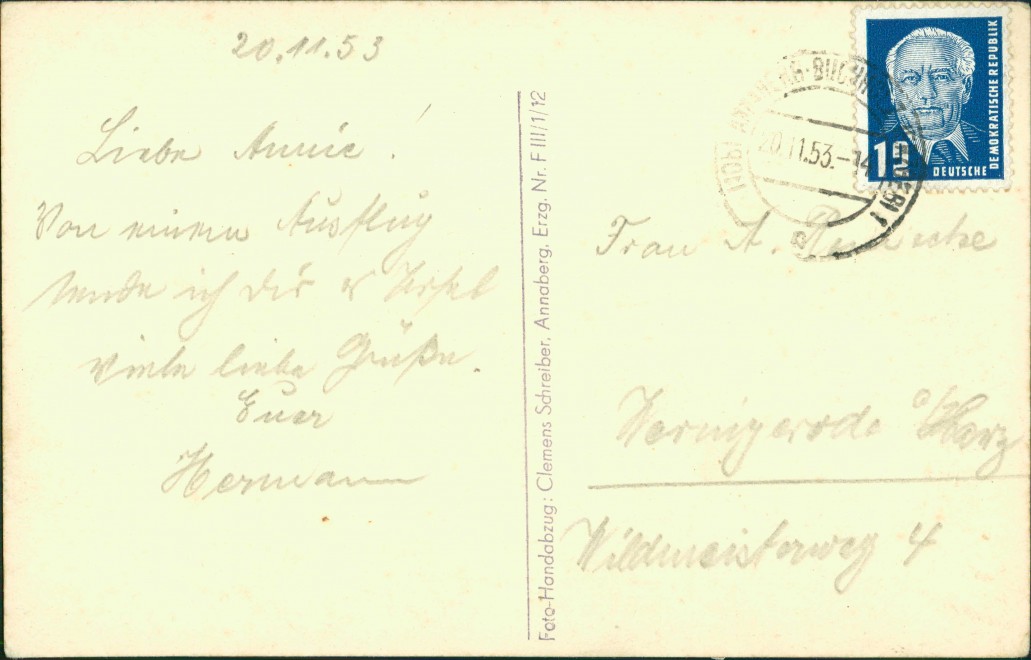 20.11.53
Liebe Annie!
Von einem Ausflug
sende ich dir
viele liebe Grüße.
Euer
Hermann
Foto-Handabzug: Clemens Schreiber, Annaberg, Erzg. Nr. F III/1/12
DEUTSCHE DEMOKRATISCHE REPUBLIK
20.11.53.-14
Frau A.
Wernigerode a/Harz
Wildmeisterweg 4